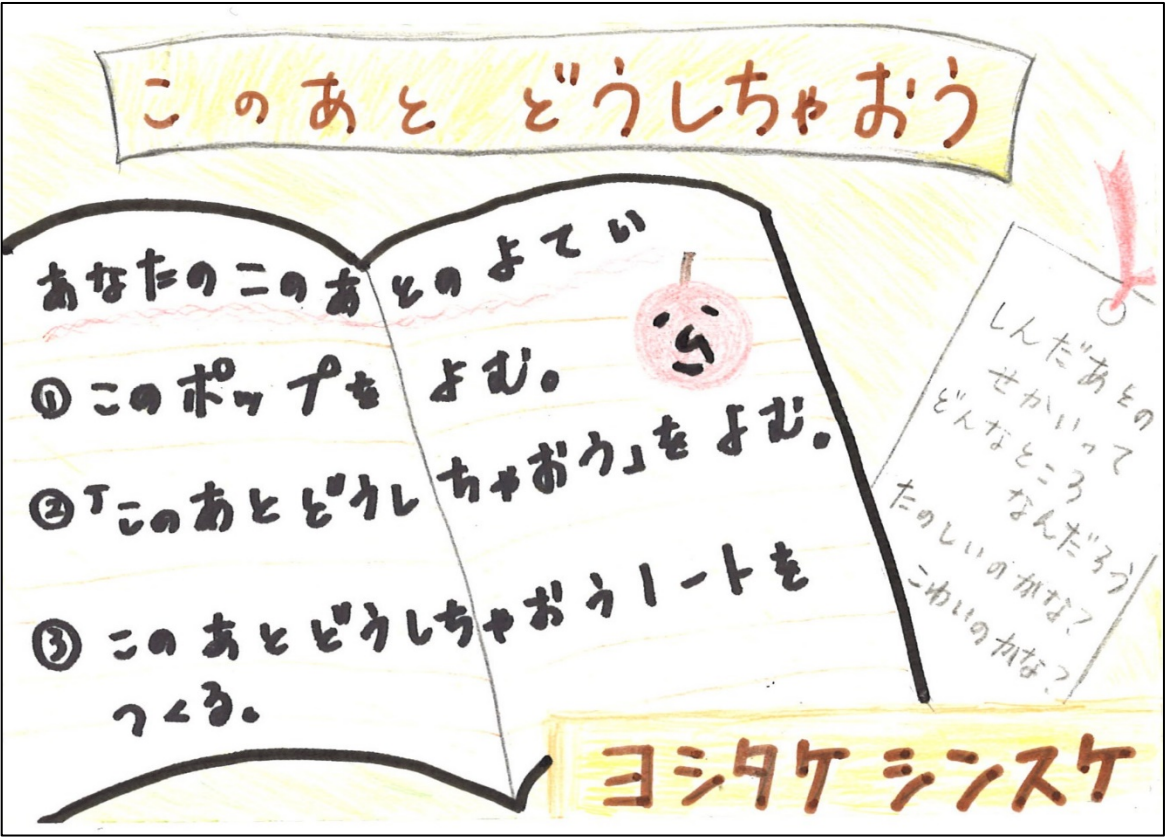 このあと どうしちゃおう
あなたのこのあとのよてい
①このポップを よむ。
②「このあとどうしちゃおう」をよむ。
③このあとどうしちゃおうノートを
つくる。
しんだあとの
せかいって
どんなところ
なんだろう
たのしいのかな?
こわいのかな?
ヨシタケシンスケ